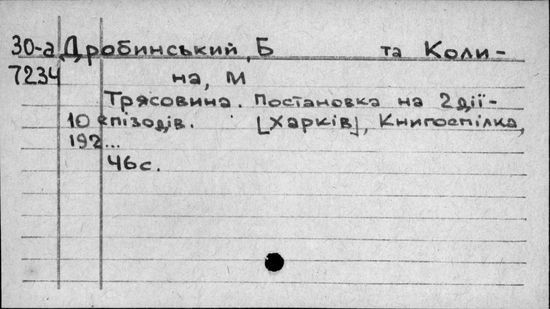 30-а Дробинський, Б та Коли-
7234 на, М
Трясовина. Постановка на 2 дії-
10 епізодів. [Харків], Книгоспілка,
192...
46с.